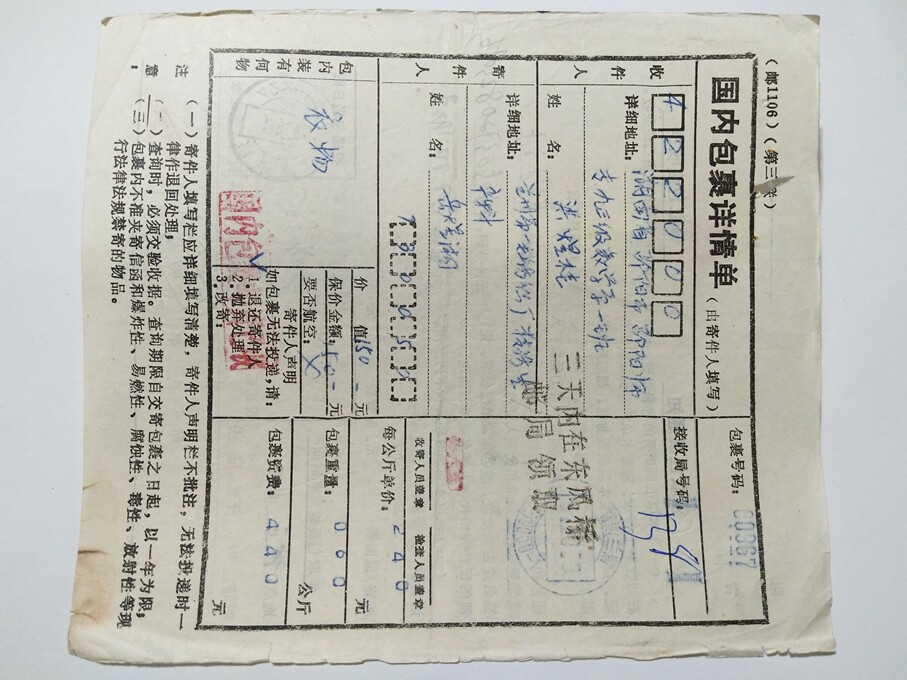 （邮1106）（第三联）
国内包裹详情单（由寄件人填写）
包裹号码：
00967
422000
接收局号码：
收件人
详细地址：
湖南省邵阳市邵阳师
专九三级数学系一班
姓名：
洪煜桂
三天内在东风桥
邮局领取
寄件人
详细地址：
姓名：
收寄人员签章
检查人员签章
包内装有何物
衣物
价值150-元
保价金额：150-元
要否航空：×
寄件人声明
如包裹无法投递，请：
√1．退还寄件人
2．抛弃处理
3．改寄：
国内包
每公斤单价：240元
包裹重量：060公斤
包裹资费：440元
注意：
（一）寄件人填写栏应详细填写清楚，寄件人声明栏不批注，无法投递时一
律作退回处理，
（二）查询时，必须交验收据。查询期限自交寄包裹之日起，以一年为限，
（三）包裹内不准夹寄信函和爆炸性、易燃性、腐蚀性、毒性、放射性等现
行法律法规禁寄的物品。